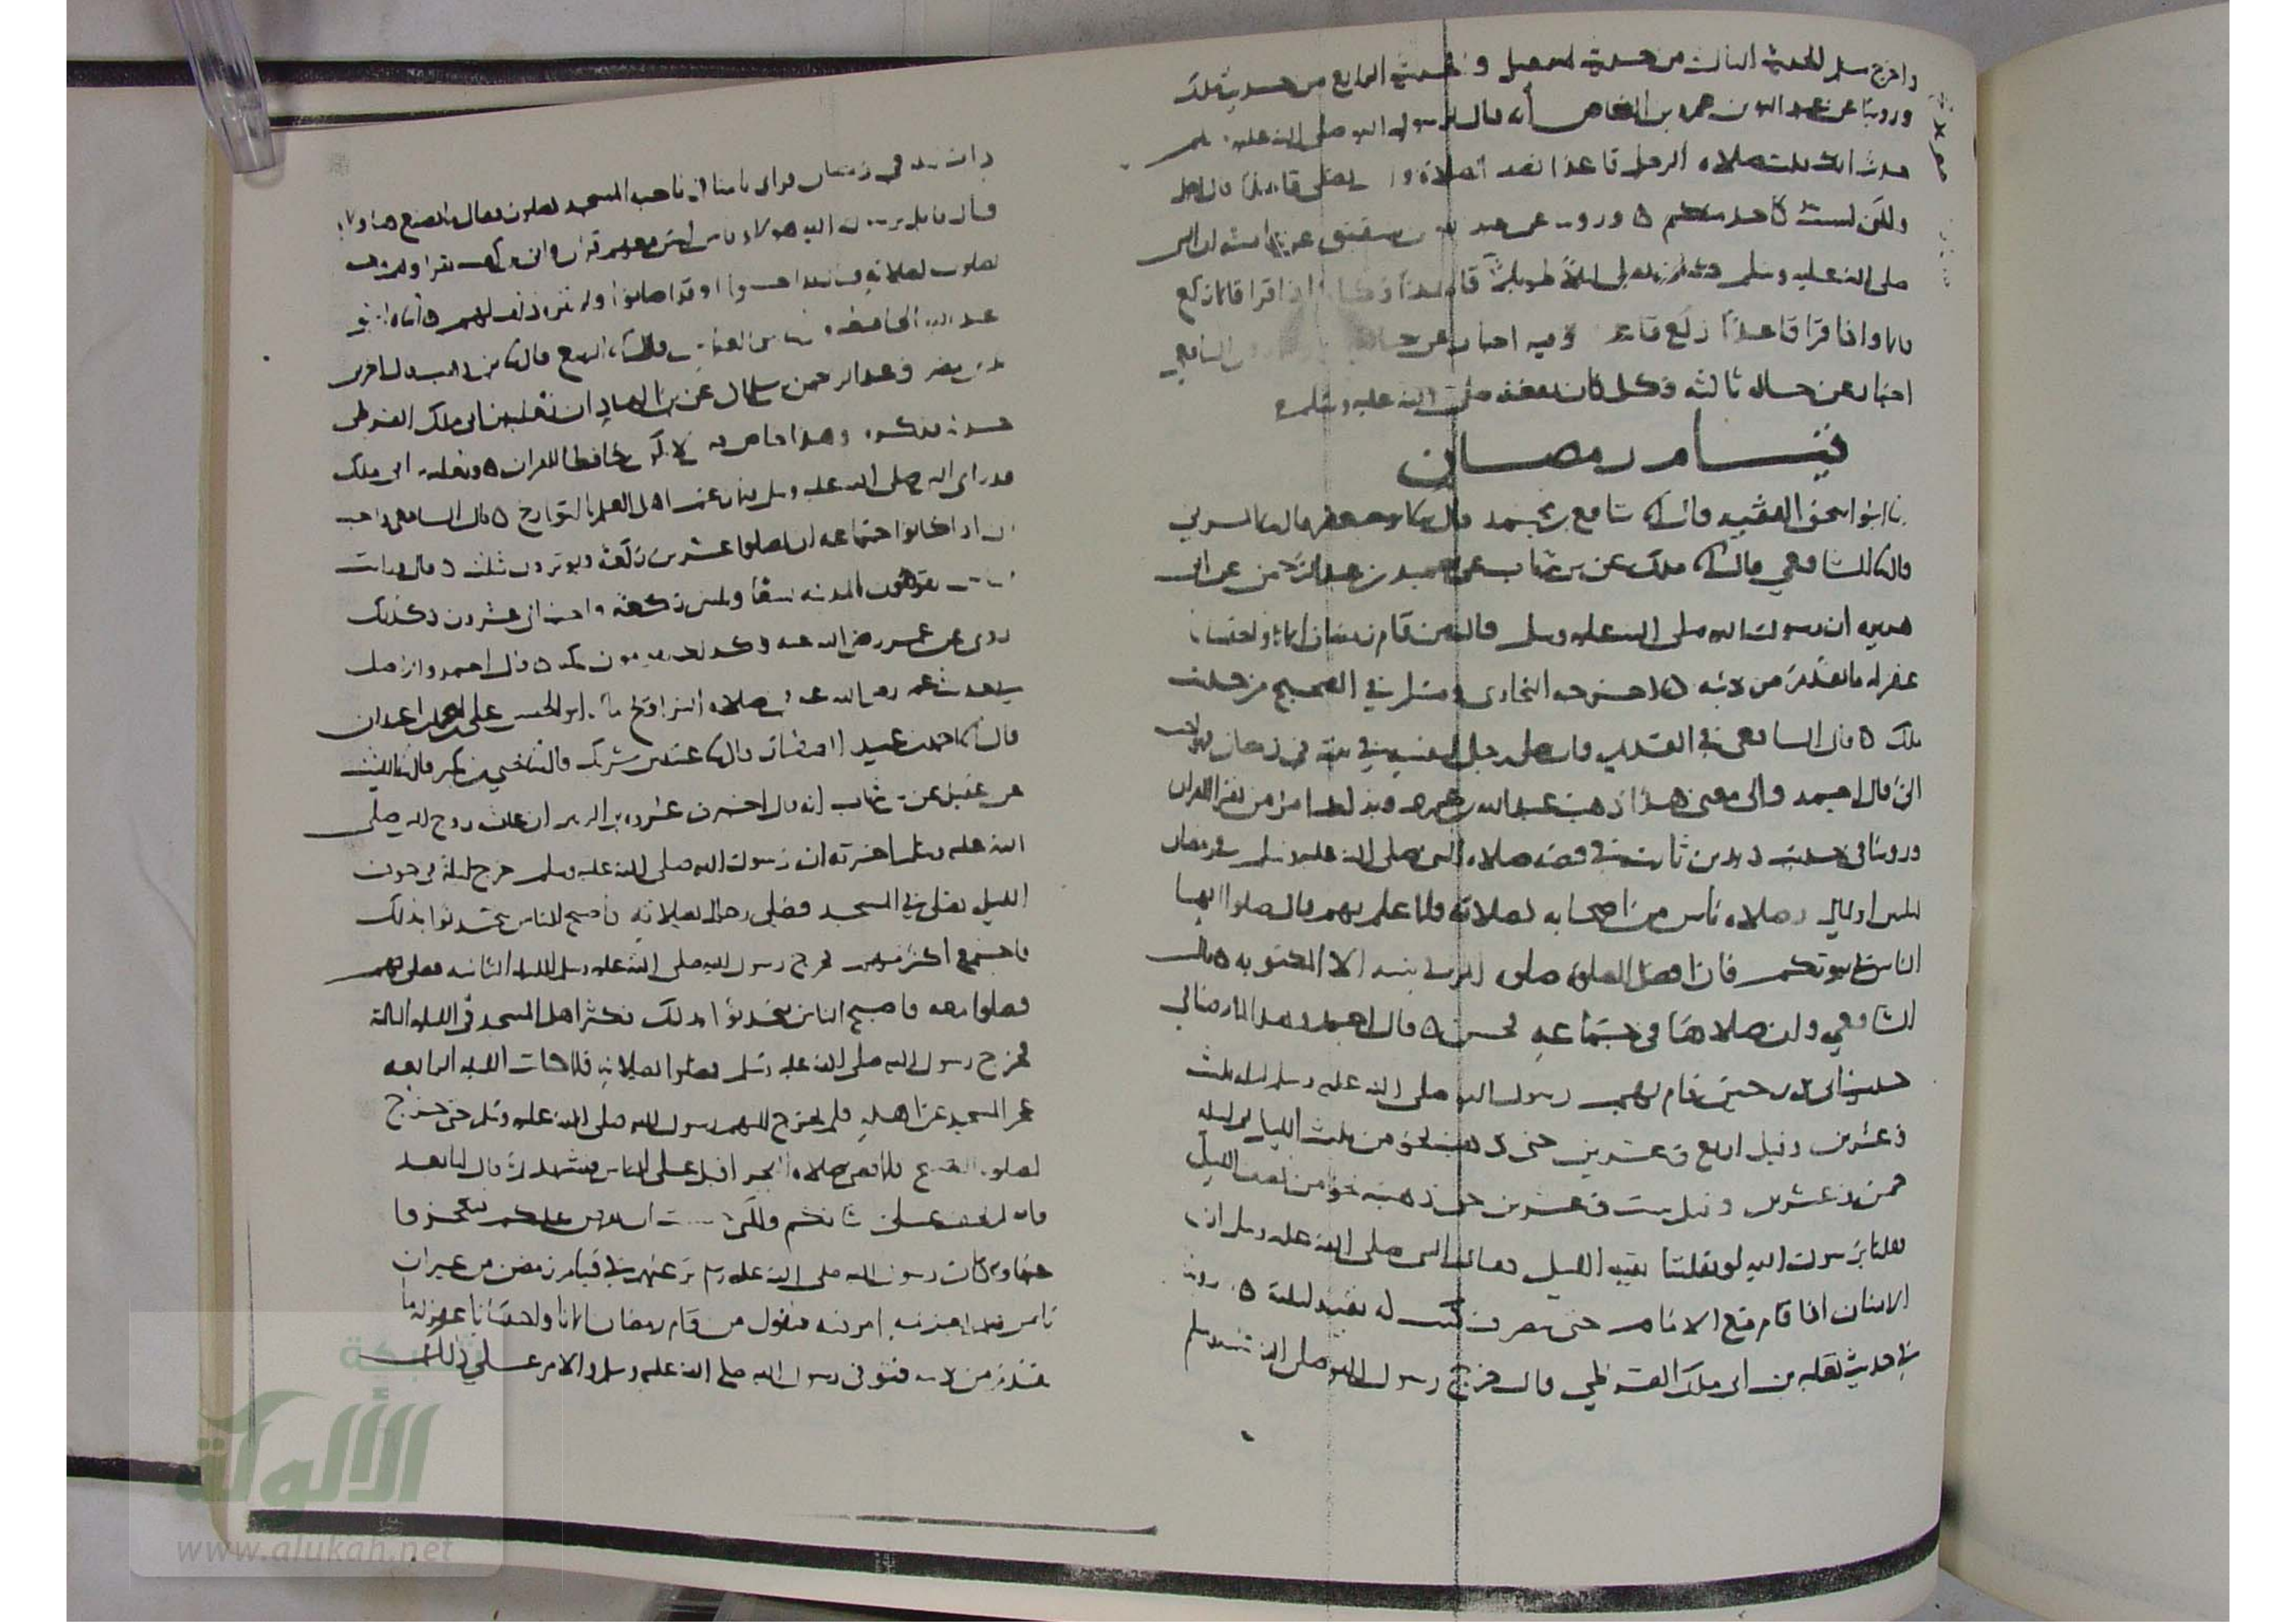 واخرج مسلم الحديث الثالث من حديث والحديث الرابع من حديث ملك
وروينا عن عبد الله بن عمرو بن العاص أنه قال لرسول الله صلى الله عليه وسلم
حدثت انك قلت صلاة الرجل قاعدا نصف الصلاة و تصلي قاعدا قال اجل
ولكن لست كاحد منكم ه وروينا عن عبد الله بن شقيق عن عائشة ان النبي
صلى الله عليه وسلم كان يصلي ليلا طويلا اذا قرا قائما ركع
قائما واذا قرا قاعدا ركع قاعدا وفيه اخبار عن الشافعي
اخبار عن حالة ثالثة وكل كان يفعله صلى الله عليه وسلم
قيام رمضان
ابو اسحق الفقيه قال انا شافع بن محمد قال انا ابو جعفر قال نا المزني
قال نا الشافعي قال انا ملك عن بن شهاب عن حميد بن عبد الرحمن عن ابي
هريرة ان رسول الله صلى الله عليه وسلم قال من قام رمضان ايمانا واحتسابا
غفر له ما تقدم من ذنبه ه اخرجه البخاري ومسلم في الصحيح من حديث
ملك ه قال الشافعي في القديم فان صلى رجل لنفسه في بيته في رمضان فهو احب
الي قال احمد والى معنى هذا ذهب عبد الله بن عمر فيمن يقرا القران
وروينا في حديث زيد بن ثابت في قصة صلاة النبي صلى الله عليه وسلم في رمضان
ليالي وصلاة ناس من اصحابه بصلاته فلما علم بهم قال صلوا ايها
الناس في بيوتكم فان افضل الصلاة صلوة المرء في بيته الا المكتوبة ه قال
الشافعي وان صلاها في جماعة فحسن ه قال احمد
حديث ابي ذر حين قام بهم رسول الله صلى الله عليه وسلم ليلة ثلث
وعشرين وقيل اربع وعشرين حتى ذهب نحو من ثلث الليل ليلة
خمس وعشرين وقيل ست وعشرين حتى ذهب نحو من نصف الليل
فقلنا يا رسول الله لو نفلتنا بقية الليل فقال النبي صلى الله عليه وسلم ان
الانسان اذا قام مع الامام حتى ينصرف كتب له بقية ليلته ه وروينا
في حديث ثعلبة بن ابي ملك القرظي قال خرج رسول الله صلى الله عليه وسلم
ذات ليلة في رمضان فراى ناسا في ناحية المسجد يصلون فقال ما يصنع هاولاء
قال قائل يرسول الله هولاء ناس ليس معهم قران وابي بن كعب يقرا وهم معه
يصلون بصلاته قال قد احسنوا او قد اصابوا ولم يكره ذلك لهم ه انباه ابو
عبد الله الحافظ قال نا الربيع قال نا بن وهب قال اخبرني
بكر بن مضر وعبد الرحمن بن سلمان عن بن الهاد ان ثعلبة بن ابي ملك القرظي
حدثه فذكره وهذا خاص بمن لا يكون حافظا للقران ه وثعلبة بن ابي ملك
قد راى النبي صلى الله عليه وسلم فيما زعم اهل العلم بالتواريخ ه قال الشافعي واحب
الي اذا كانوا جماعة ان يصلوا عشرين ركعة ويوترون بثلث ه قال ورايت
الناس يقومون بالمدينة تسعا وثلثين ركعة واحب الي عشرون وكذلك
روي عن عمر رضي الله عنه وكذلك يقومون بمكة ه قال احمد
عمر رضي الله عنه في صلاة التراويح ما ابو الحسن علي بن احمد بن عبدان
قال انا احمد بن عبيد الصفار قال نا عبيد بن شريك قال نا يحيى بن بكير قال نا الليث
عن عقيل عن بن شهاب انه قال اخبرني عروة بن الزبير ان عائشة زوج النبي صلى
الله عليه وسلم اخبرته ان رسول الله صلى الله عليه وسلم خرج ليلة في جوف
الليل يصلي في المسجد فصلى رجال بصلاته فاصبح الناس يتحدثوا بذلك
فاجتمع اكثر منهم فخرج رسول الله صلى الله عليه وسلم الليلة الثانية فصلى بهم
فصلوا معه فاصبح الناس يتحدثوا بذلك فكثر اهل المسجد في الليلة الثالثة
فخرج رسول الله صلى الله عليه وسلم فصلوا بصلاته فلما كانت الليلة الرابعة
عجز المسجد عن اهله فلم يخرج اليهم رسول الله صلى الله عليه وسلم حتى خرج
لصلوة الصبح فلما قضى صلاة الفجر اقبل على الناس فتشهد ثم قال اما بعد
فانه لم يخف علي شانكم ولكني خشيت ان يفرض عليكم فتعجزوا
عنها وكان رسول الله صلى الله عليه وسلم يرغبهم في قيام رمضان من غير ان
يامرهم بعزيمة امر فيه فيقول من قام رمضان ايمانا واحتسابا غفر له ما
تقدم من ذنبه فتوفي رسول الله صلى الله عليه وسلم والامر على ذلك
شبكة
الألوكة
www.alukah.net